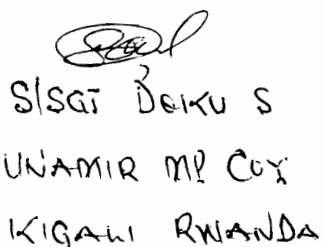 S/SGT DEKU S
UNAMIR MP COY
KIGALI RWANDA